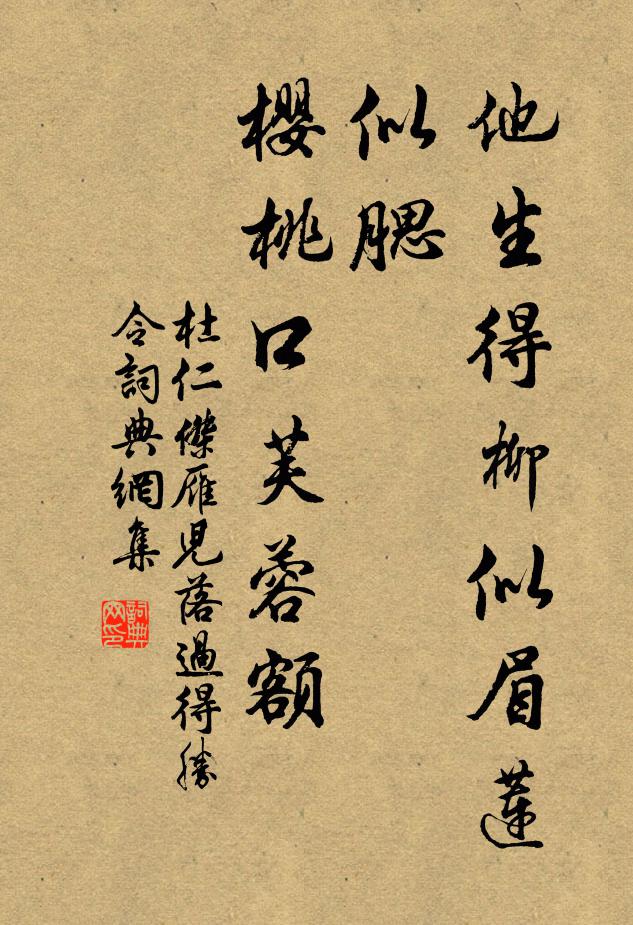 他生得柳似眉蓮
似腮
櫻桃口芙蓉額
杜仁傑雁児落過得勝
令詞典網集
詞典
网印